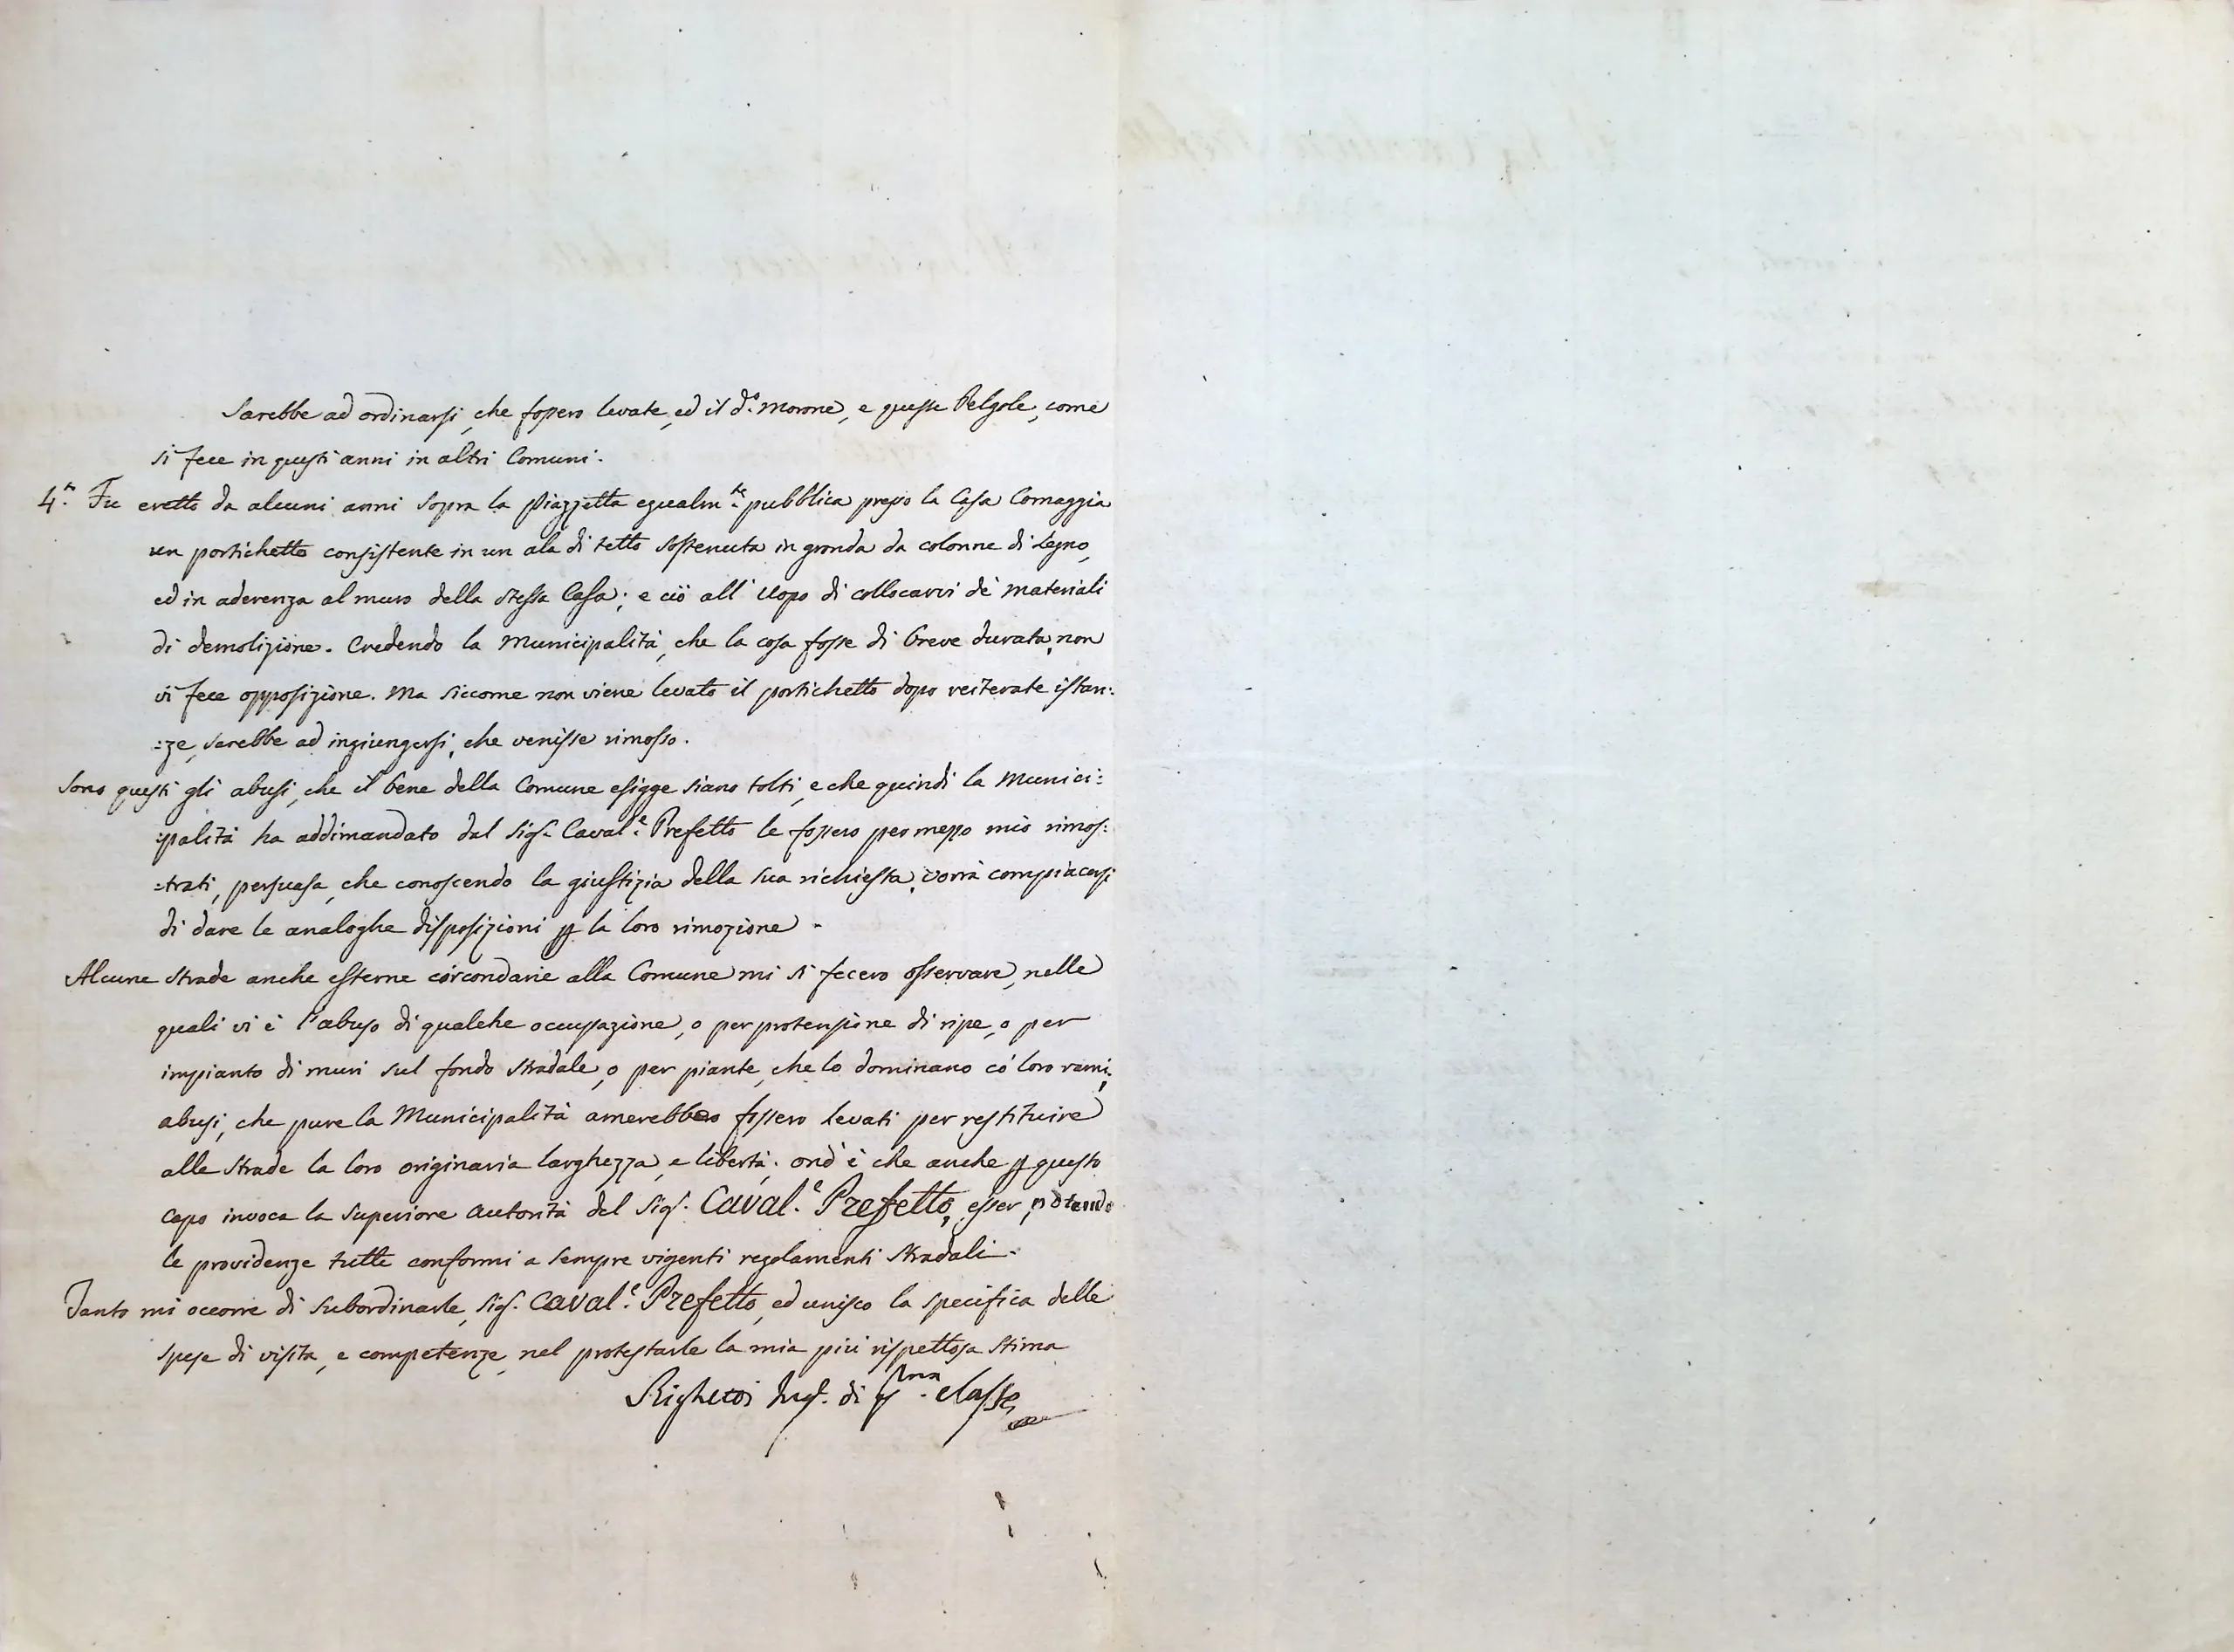 Sarebbe ad ordinarsi, che fossero levate, ed il d.o Morone, e queste Pelgole, come
si fece in questi anni in altri Comuni.
4.o Fu eretto da alcuni anni sopra la Piazzetta egualm.te pubblica presso la Casa Comaggia
un portichetto consistente in un ala di tetto sostenuta in gronda da colonne di Legno,
ed in aderenza al muro della stessa Casa; e ciò all'uopo di collocarvi de' materiali
di demolizione. Credendo la Municipalità, che la cosa fosse di breve durata, non
vi fece opposizione. Ma siccome non viene levato il portichetto dopo reiterate istan:
:ze, sarebbe ad ingiungersi, che venisse rimosso.
Sono questi gli abusi, che il bene della Comune esigge siano tolti, e che quindi la Munici:
:palità ha addimandato dal Sig.r Caval.e Prefetto le fossero per mezzo mio rimos:
:trati, persuasa, che conoscendo la giustizia della sua richiesta, vorrà compiacersi
di dare le analoghe disposizioni p la loro rimozione.
Alcune strade anche esterne circondarie alla Comune mi si fecero osservare, nelle
quali vi è l'abuso di qualche occupazione, o per protensione di ripe, o per
impianto di muri sul fondo stradale, o per piante, che lo dominano co' loro rami;
abusi, che pure la Municipalità amerebbe fossero levati per restituire
alle strade la loro originaria larghezza, e libertà. ond'è che anche p questo
capo invoca la superiore autorità del Sig.r Caval.e Prefetto, esser potendo
le providenze tutte conformi a sempre vigenti regolamenti stradali.
Tanto mi occorre di subordinarle, Sig.r Caval.e Prefetto, ed unisco la specifica delle
spese di visita, e competenze, nel protestarle la mia più rispettosa stima
Righetti Ing.r di p.ma classe